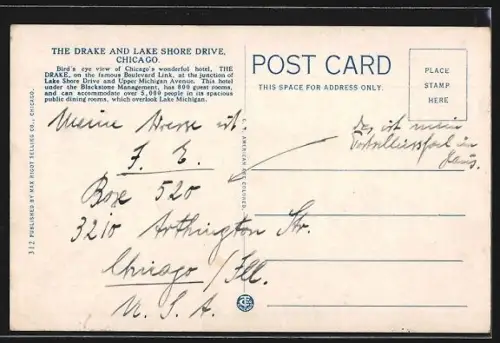 THE DRAKE AND LAKE SHORE DRIVE,
CHICAGO.
Bird's eye view of Chicago's wonderful hotel, THE
DRAKE, on the famous Boulevard Link, at the junction of
Lake Shore Drive and Upper Michigan Avenue. This hotel
under the Blackstone Management, has 800 guest rooms,
and can accommodate over 5,000 people in its spacious
public dining rooms, which overlook Lake Michigan.
POST CARD
THIS SPACE FOR ADDRESS ONLY.
PLACE
STAMP
HERE
Meine Adresse ist
F. E.
Box 520
3210 Arthington Str.
Chicago / Ill.
U. S. A.
Das ist mein
im
Haus.
312 PUBLISHED BY MAX RIGOT SELLING CO., CHICAGO.
C. T. AMERICAN ART COLORED